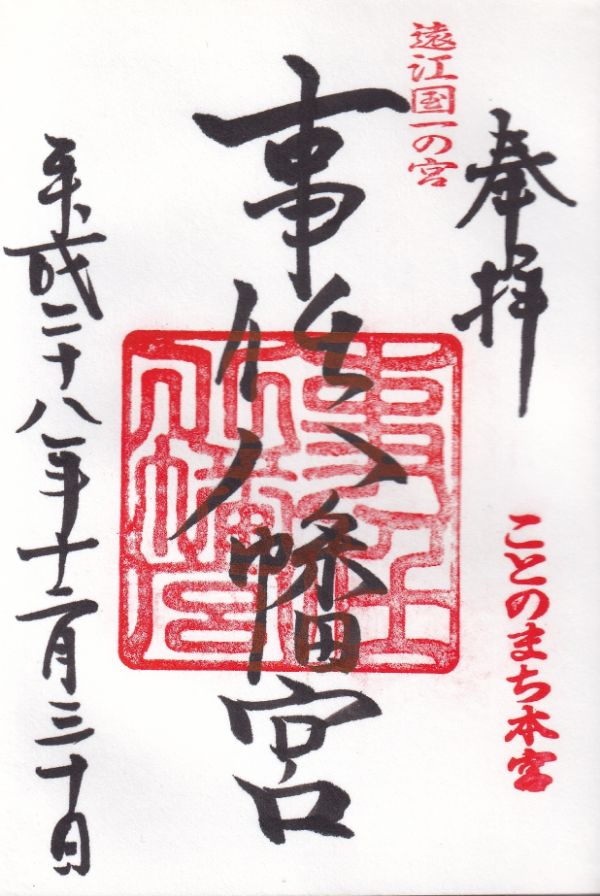 奉拝
遠江国一の宮
ことのまち本宮
事任八幡宮
平成二十八年十二月三十日